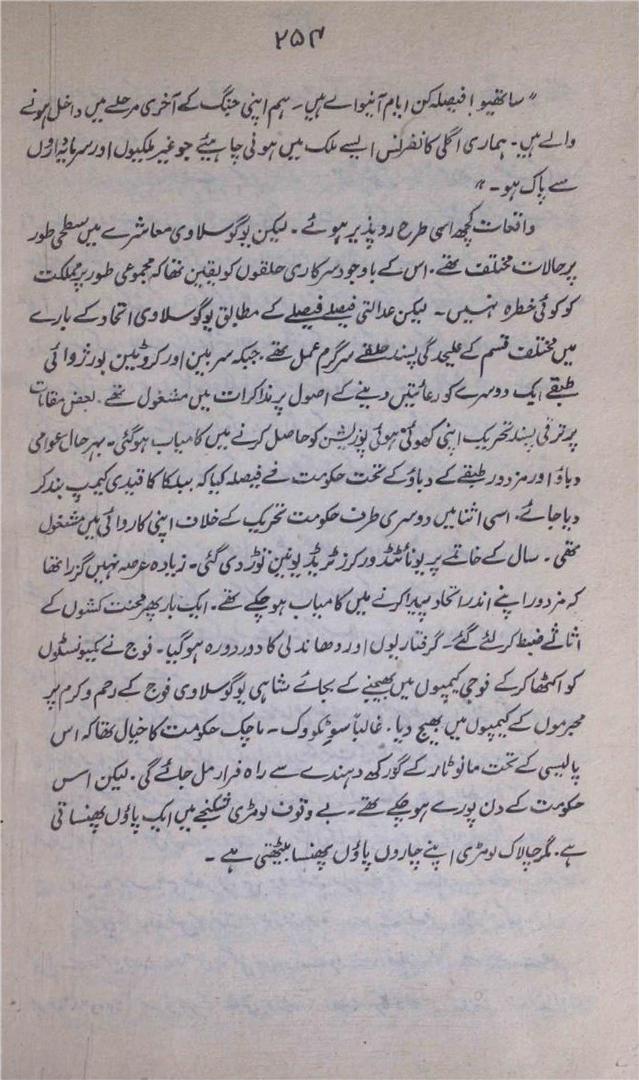 ۲۵۴
"ساتھیو! فیصلہ کن ایام آنیوالے ہیں۔ ہم اپنی جنگ کے آخری مرحلے میں داخل ہونے
والے ہیں۔ ہماری اگلی کانفرنس ایسے ملک میں ہونی چاہیئے جو غیر ملکیوں اور سرمایہ داروں
سے پاک ہو۔"
واقعات کچھ اسی طرح روپذیر ہوئے۔ لیکن یوگوسلاوی معاشرے میں سطحی طور
پر حالات مختلف تھے۔ اس کے باوجود سرکاری حلقوں کو یقین تھا کہ مجموعی طور پر مملکت
کو کوئی خطرہ نہیں۔ لیکن عدالتی فیصلے فیصلے کے مطابق یوگوسلاوی اتحاد کے بارے
میں مختلف قسم کے علیحدگی پسند حلقے سرگرم عمل تھے۔ جبکہ سربین اور کروٹین بورژوائی
طبقے ایک دوسرے کو رعائتیں دینے کے اصول پر مذاکرات میں مشغول تھے۔ بعض مقامات
پر ترقی پسند تحریک اپنی کھوئی ہوئی پوزیشن کو حاصل کرنے میں کامیاب ہو گئی۔ بہرحال عوامی
دباؤ اور مزدور طبقے کے دباؤ کے تحت حکومت نے فیصلہ کیا کہ بیلکا کا قیدی کیمپ بند کر
دیا جائے۔ اسی اثنا میں دوسری طرف حکومت تحریک کے خلاف اپنی کاروائی میں مشغول
تھی۔ سال کے خاتمے پر یونائٹڈ ورکرز ٹریڈ یونین توڑ دی گئی۔ زیادہ عرصہ نہیں گزرا تھا
کہ مزدور اپنے اندر اتحاد پیدا کرنے میں کامیاب ہو چکے تھے۔ ایک بار پھر محنت کشوں کے
اثاثے ضبط کر لئے گئے۔ گرفتاریوں اور دھاندلی کا دور دورہ ہو گیا۔ فوج نے کمیونسٹوں
کو اکٹھا کرکے فوجی کیمپوں میں بھیجنے کے بجائے شاہی یوگوسلاوی فوج کے رحم و کرم پر
مجرموں کے کیمپوں میں بھیج دیا۔ غالباً سوٹکووک۔ ماچک حکومت کا خیال تھا کہ اس
پالیسی کے تحت مانوٹار کے گورکھ دہندے سے راہ فرار مل جائے گی۔ لیکن اس
حکومت کے دن پورے ہو چکے تھے۔ بے وقوف لومڑی شکنجے میں ایک پاؤں پھنساتی
ہے۔ مگر چالاک لومڑی اپنے چاروں پاؤں پھنسا بیٹھتی ہے۔